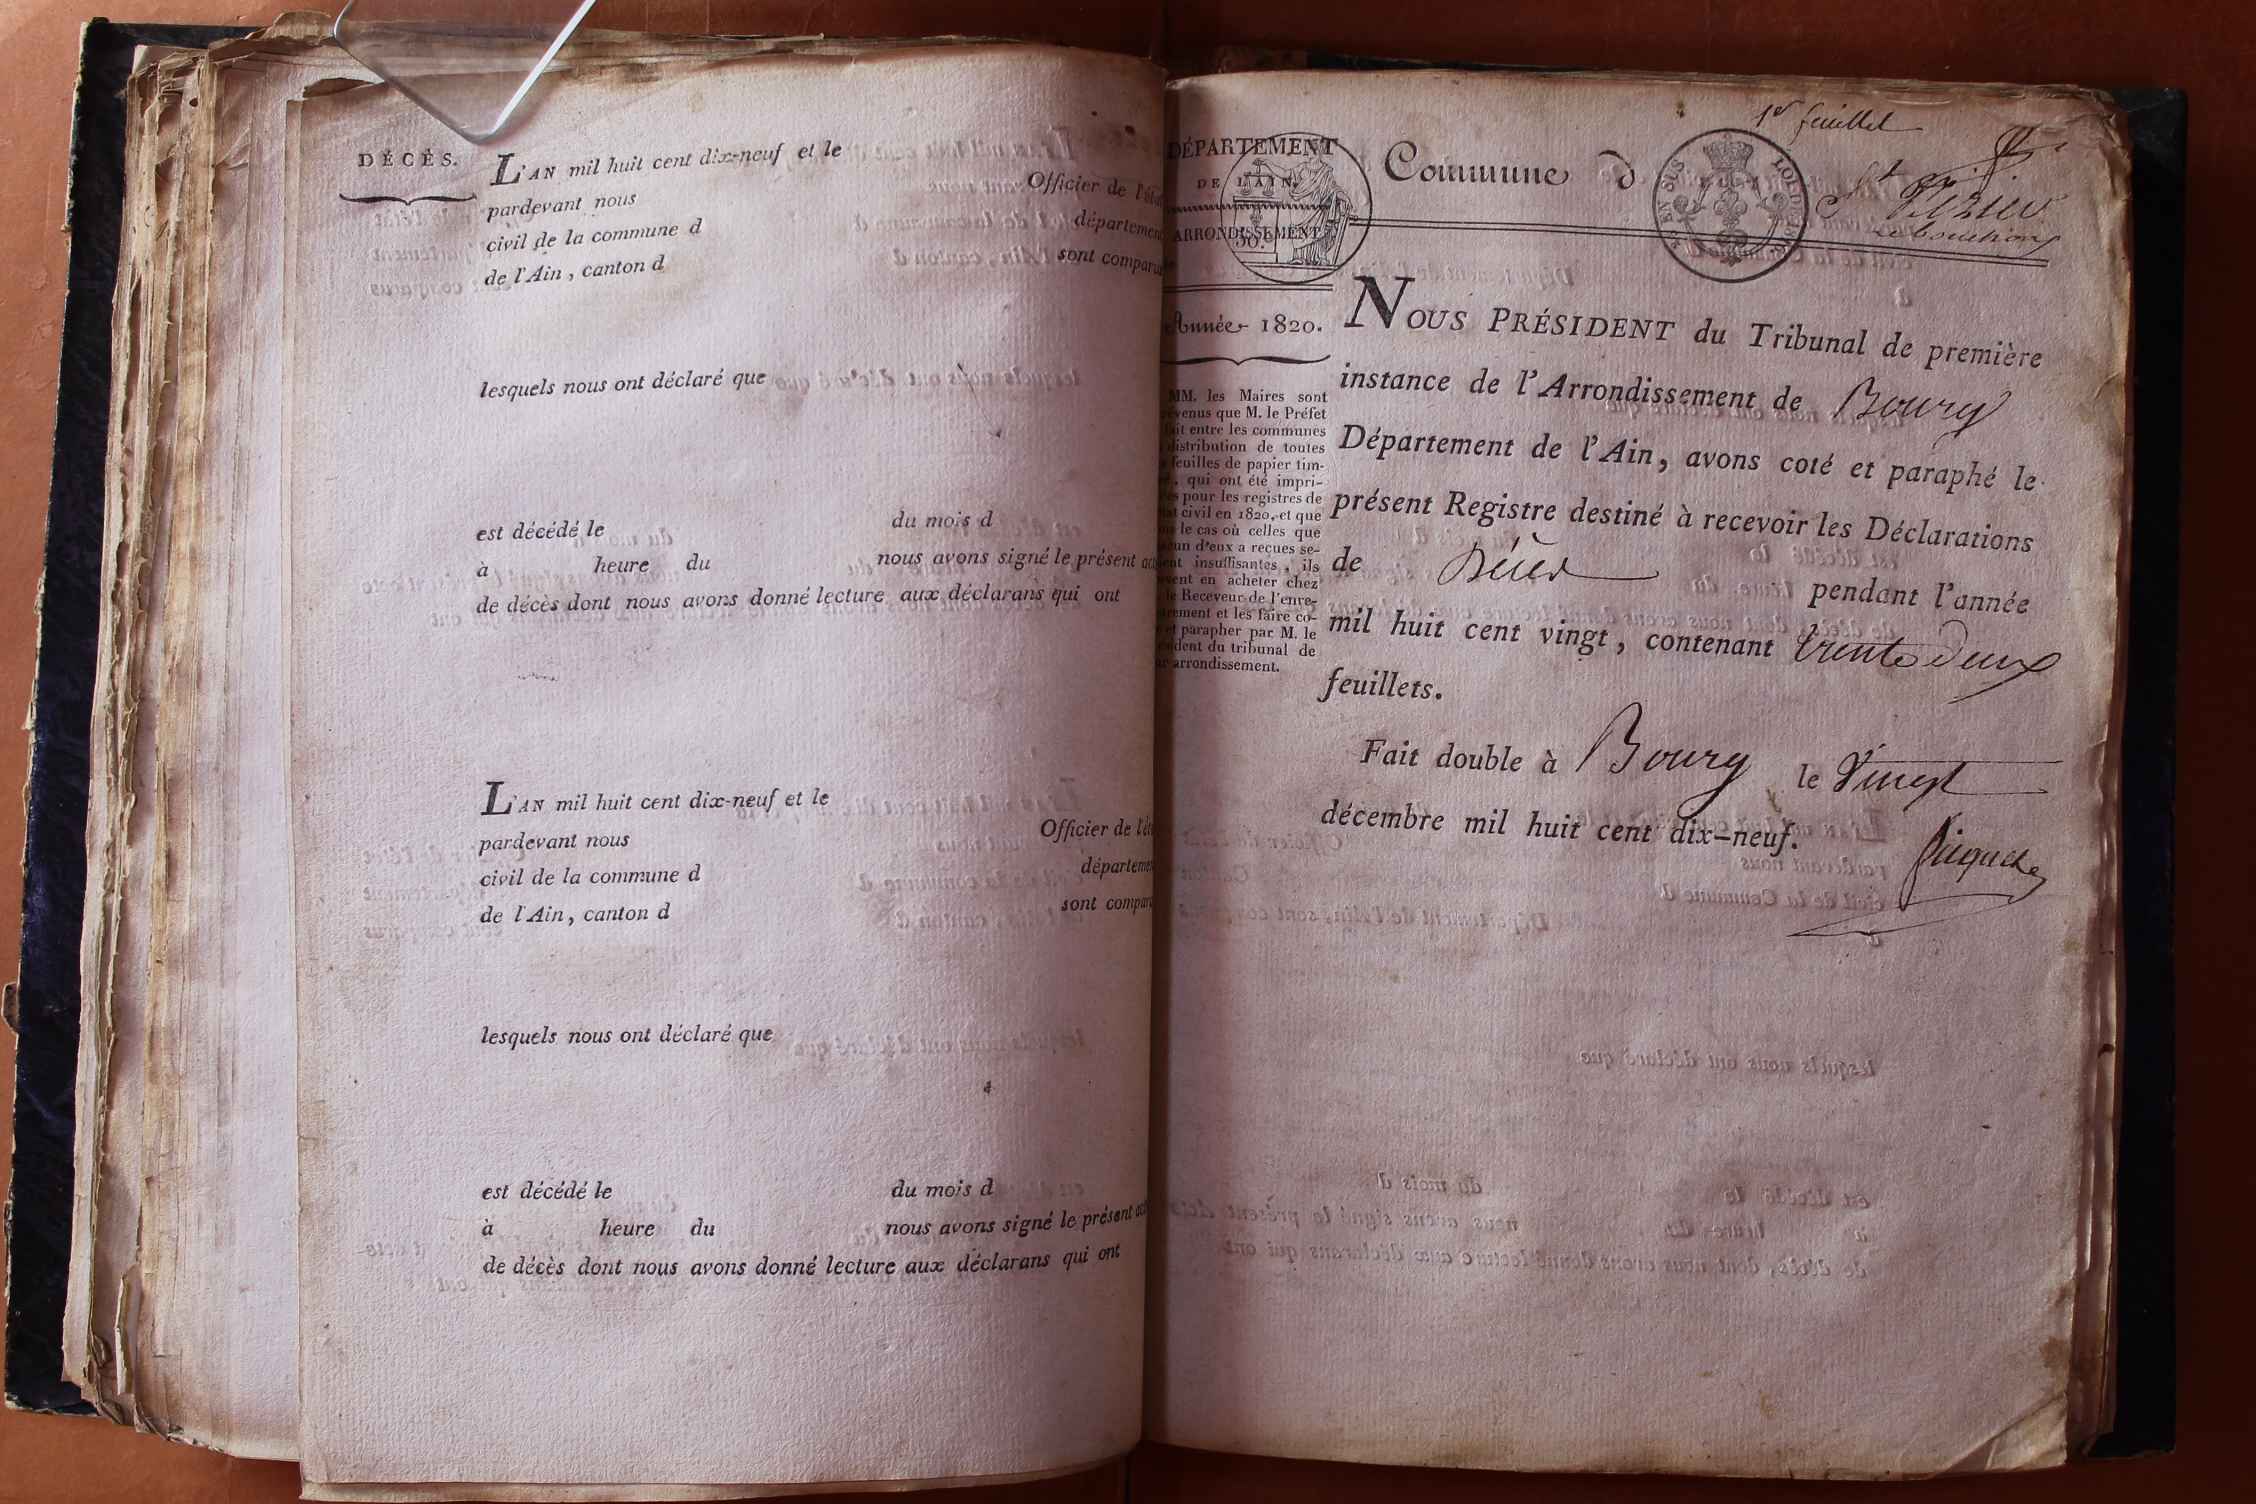 DÉCÈS.
L'AN mil huit cent dix-neuf et le
pardevant nous
Officier de l'état
civil de la commune d
département
de l'Ain, canton d
sont comparus
lesquels nous ont déclaré que
est décédé le du mois d
à heure du nous avons signé le présent acte
de décès dont nous avons donné lecture aux déclarans qui ont
L'AN mil huit cent dix-neuf et le
pardevant nous
Officier de l'ét
civil de la commune d
départemen
de l'Ain, canton d
sont compar
lesquels nous ont déclaré que
est décédé le du mois d
à heure du nous avons signé le présent act
de décès dont nous avons donné lecture aux déclarans qui ont
1er feuillet
DÉPARTEMENT
DE L'AIN.
ARRONDISSEMENT
Commune d
St
Année 1820.
MM. les Maires sont
évenus que M. le Préfet
fait entre les communes
distribution de toutes
feuilles de papier tim-
qui ont été impri-
es pour les registres de
at civil en 1820, et que
le cas où celles que
cun d'eux a reçues se-
ent insuffisantes, ils
en acheter chez
le Receveur de l'enre-
rement et les faire co-
et parapher par M. le
ident du tribunal de
arrondissement.
NOUS PRÉSIDENT du Tribunal de première
instance de l'Arrondissement de Bourg
Département de l'Ain, avons coté et paraphé le
présent Registre destiné à recevoir les Déclarations
de Décès pendant l'année
mil huit cent vingt, contenant trente deux
feuillets.
Fait double à Bourg le Vingt
décembre mil huit cent dix-neuf.